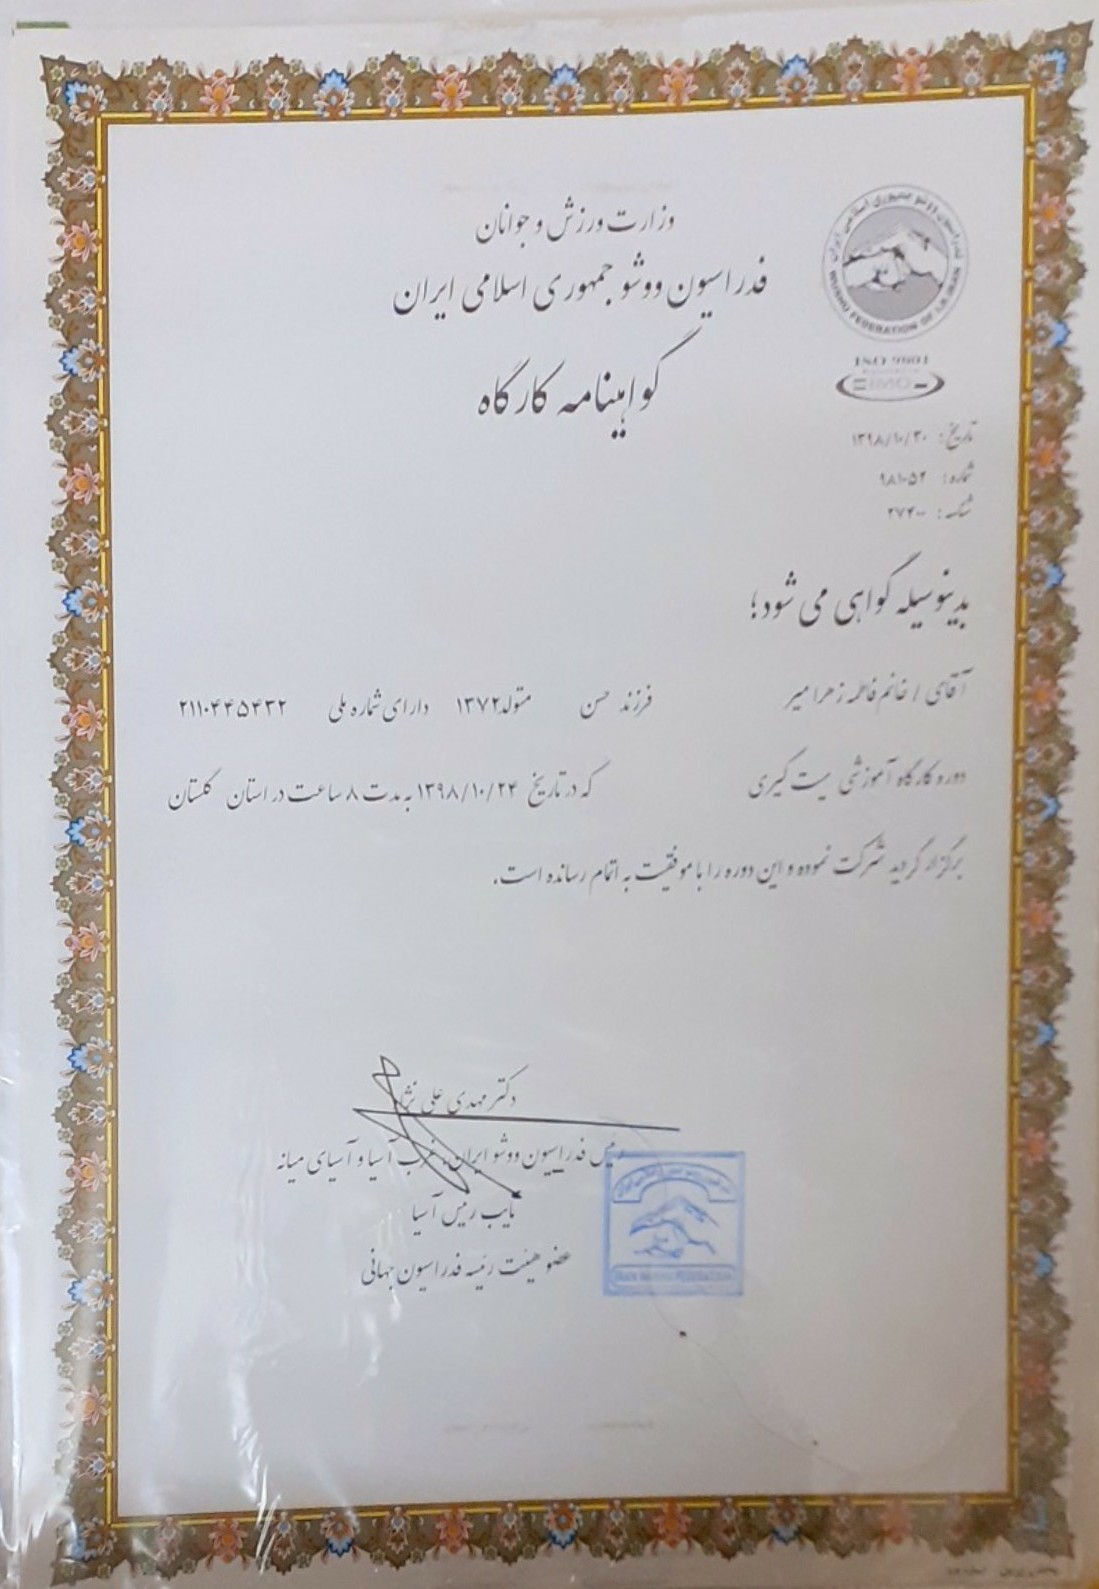 وزارت ورزش و جوانان
فدراسیون ووشو جمهوری اسلامی ایران
گواهینامه کارگاه
فدراسیون ووشو جمهوری اسلامی ایران
WUSHU FEDERATION OF I.R.IRAN
ISO 9001
تاریخ: ۱۳۹۸/۱۰/۳۰
شماره: ۹۸۱۰۵۲
شبک: ۲۷۴۰۰
بدینوسیله گواهی می شود؛
آقای / خانم فاطمه زهرا میر فرزند حسن متولد ۱۳۷۲ دارای شماره ملی ۲۱۱۰۴۴۵۴۳۲
دوره کارگاه آموزشی میت گیری که در تاریخ ۱۳۹۸/۱۰/۲۴ به مدت ۸ ساعت در استان گلستان
برگزار گردید شرکت نموده و این دوره را با موفقیت به اتمام رسانده است.
دکتر مهدی علی نژاد
رییس فدراسیون ووشو ایران، غرب آسیا و آسیای میانه
نایب رییس آسیا
عضو هیئت رئیسه فدراسیون جهانی
IRAN WUSHU FEDERATION